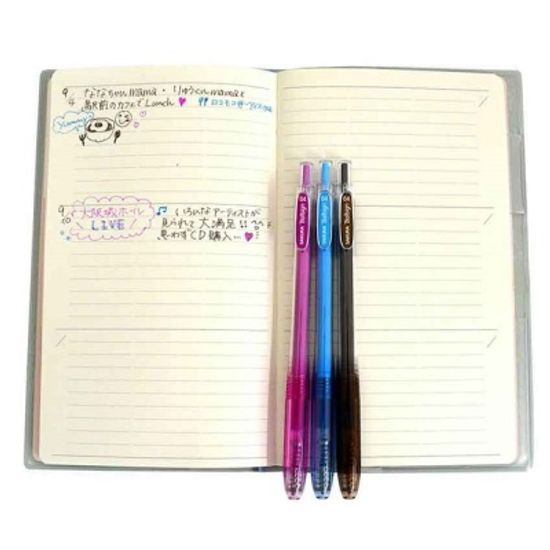 9/4 ななちゃんmama・りゅうくんmamaと
駅前のカフェでLunch♥
Yummy
9/10 大阪城ホール
LIVE
♫ いろいろなアーティストが
見られて大満足
思わずCD購入…♥
SAKURA Ballsign 04
SAKURA Ballsign 04
SAKURA Ballsign 04